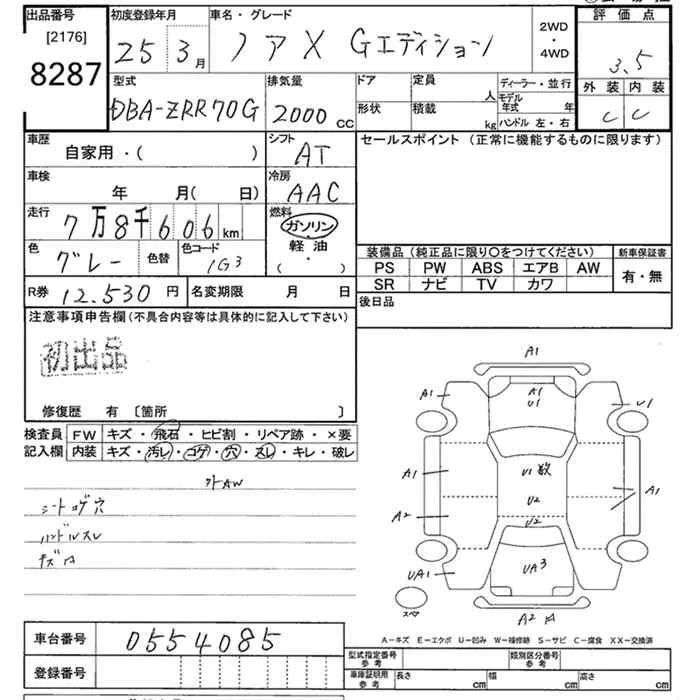 出品番号
[2176]
8287
初度登録年月
25 3月
車名・グレード
ノア X Gエディション
2WD
・
4WD
評価点
3.5
外装 内装
C C
型式
DBA-ZRR70G
排気量
2000 CC
ドア
形状
定員 人
積載 kg
ディーラー・並行
モデル年式 年
ハンドル 左・右
車歴
自家用・( )
シフト
AT
セールスポイント (正常に機能するものに限ります)
車検
年 月(日)
冷房
AAC
走行
7万8千606km
燃料
ガソリン
軽油
( ・ )
色
グレー
色替
色コード
1G3
装備品 (純正品に限り〇をつけてください)
PS PW ABS エアB AW
SR ナビ TV カワ
新車保証書
有・無
R券 12,530 円
名変期限 月 日
後日品
注意事項申告欄(不具合内容等は具体的に記入して下さい)
初出品
修復歴 有 〔箇所 〕
検査員記入欄
FW キズ・飛石・ヒビ割・リペア跡・×要
内装 キズ・汚レ・コゲ・穴・スレ・キレ・破レ
外AW
シートコゲ穴
ハンドルスレ
A1
A1 A1 U1
U1
A1 U1数 A1
A2 U2
U2
UA1 UA3
スペア
A2
A-キズ E-エクボ U-凹み W-補修跡 S-サビ C-腐食 XX-交換済
車台番号
0554085
登録番号
型式指定番号
参考
類別区分番号
参考
車庫証明用
参考
長さ cm
幅 cm
高さ cm